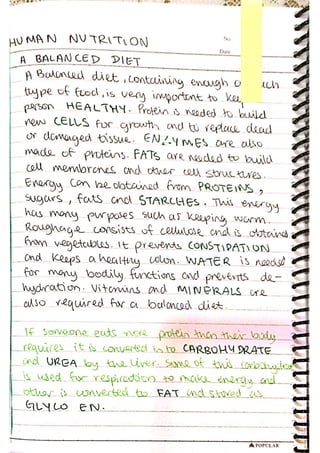 HUMAN NUTRITION
No
Date
A BALANCED DIET
A Balanced diet, containing enough each
type of food, is very important to keep
person HEALTHY. Protein is needed to build
new CELLS for growth and to replace dead
or damaged tissue. ENZYMES are also
made of proteins. FATs are needed to build
cell membranes and other cell structures.
Energy can be obtained from PROTEINS,
sugars, fats and STARCHES. This energy
has many purposes such as keeping warm.
Roughage consists of cellulose and is obtained
from vegetables. It prevents CONSTIPATION
and keeps a healthy colon. WATER is needed
for many bodily functions and prevents de-
hydration. Vitamins and MINERALS are
also required for a balanced diet
If someone eats more protein than their body
requires it is converted in to CARBOHYDRATE
and UREA by the liver. Some of this carbohydrate
is used for respiration to make energy and
other is converted to FAT and stored as
GLYCO EN.
POPULAR